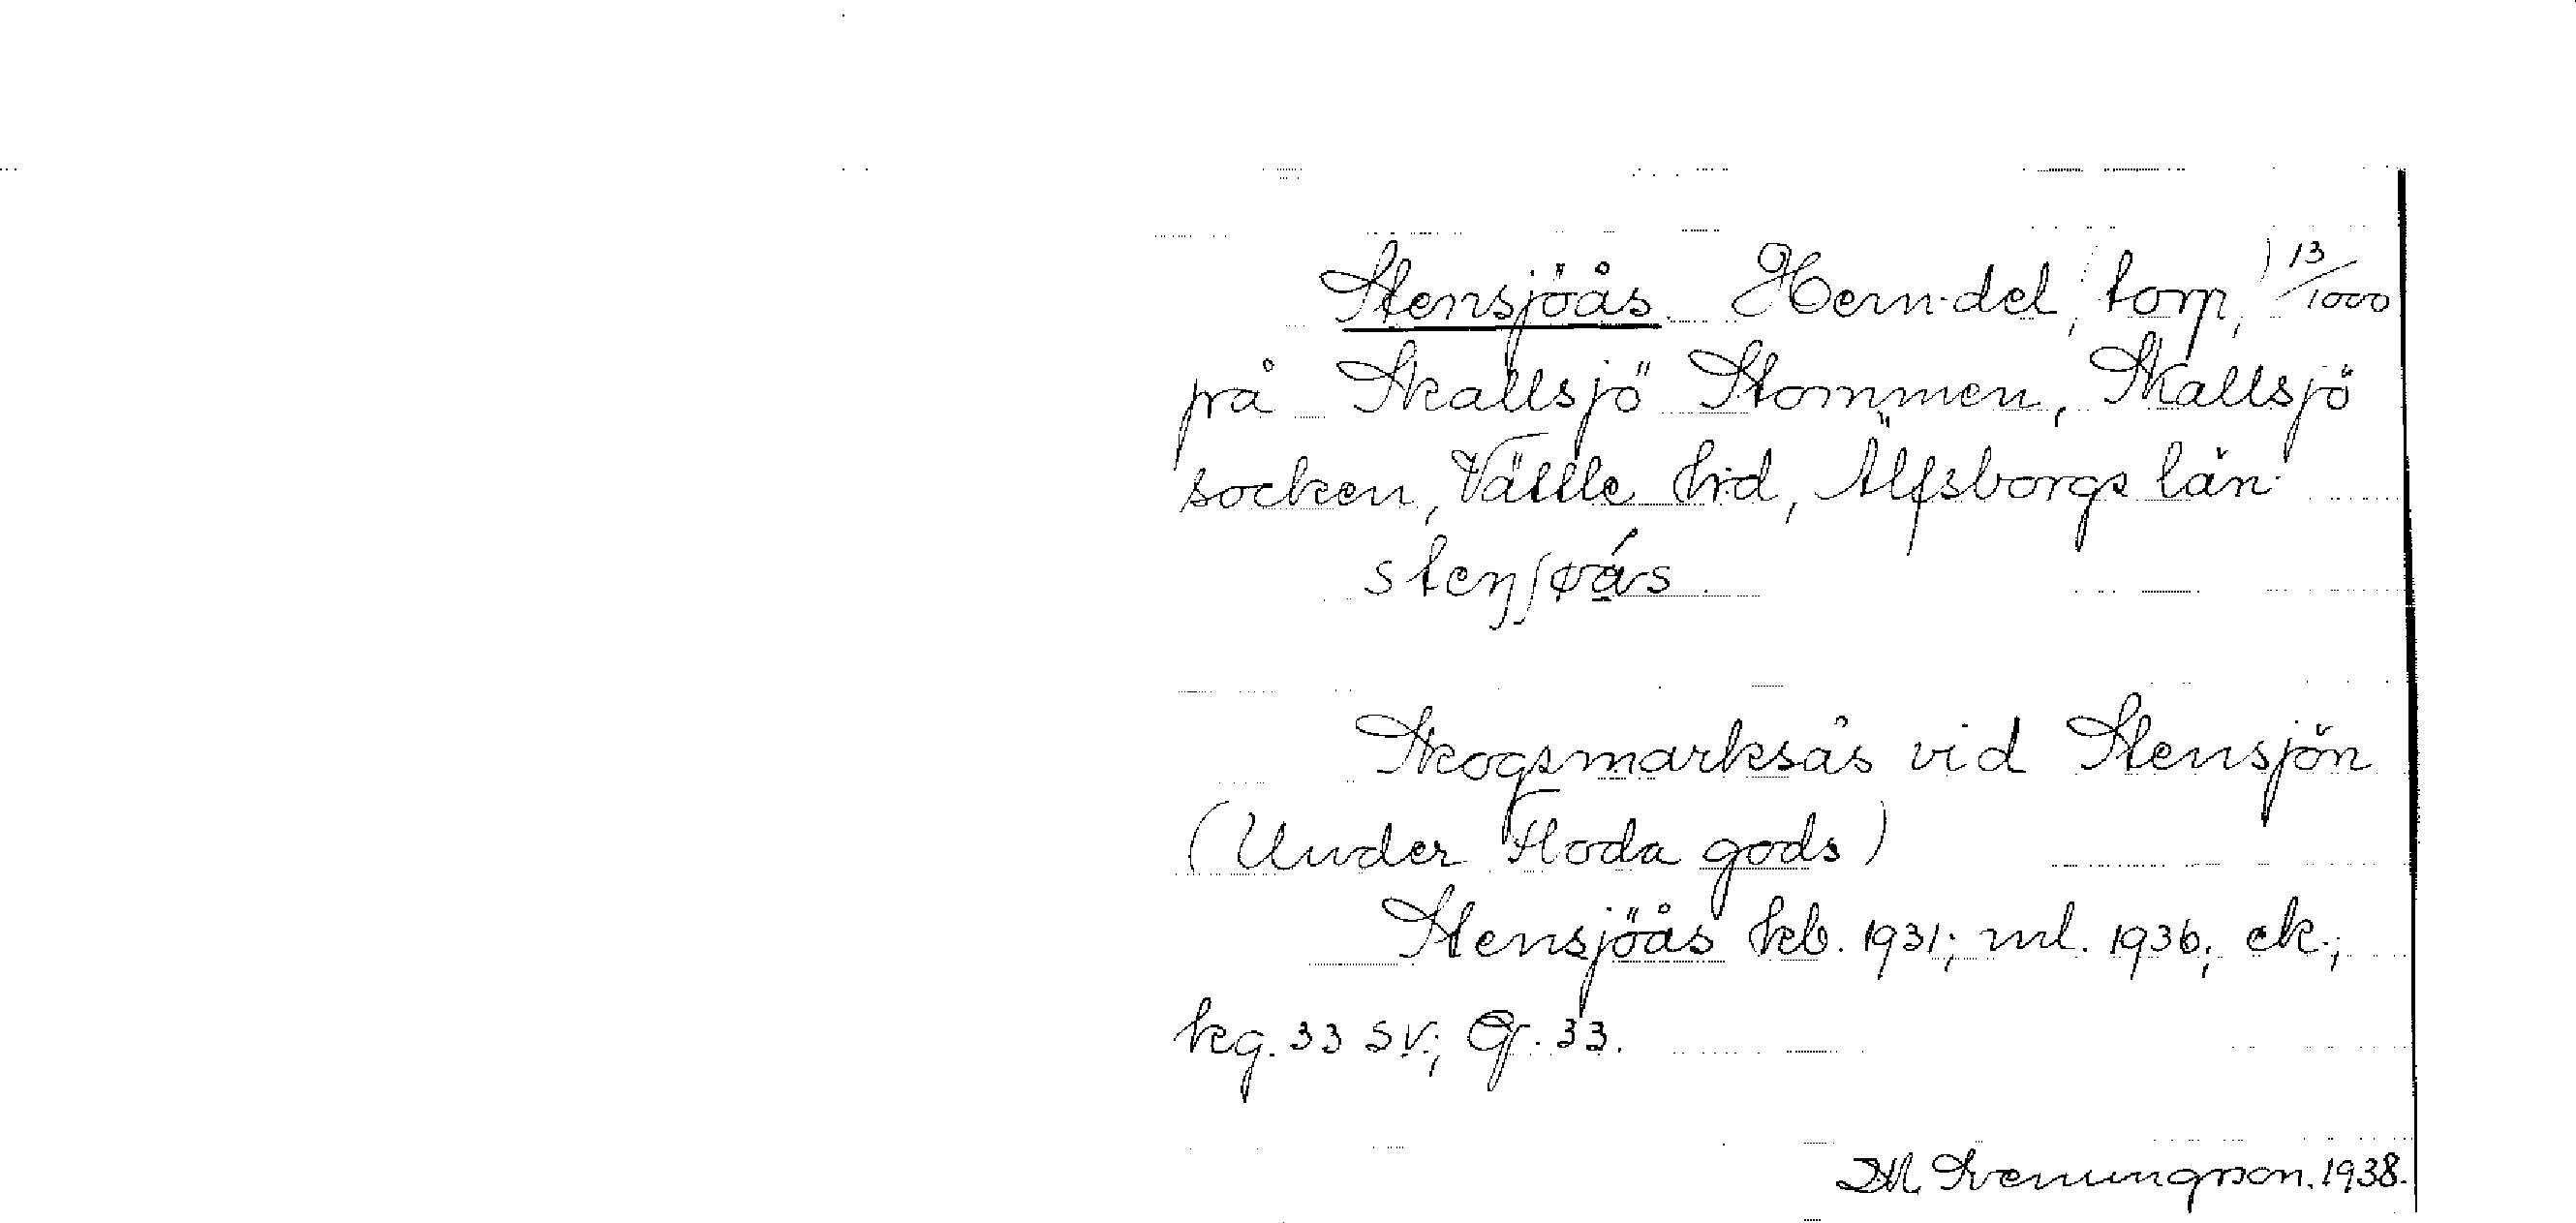 Stensjöås. Hem.del, torp, 13/1000
på Skallsjö Stommen, Skallsjö
socken, Vättle hrd, Älfsborgs län.
Skogsmarksås vid Stensjön
(Under Floda gods)
Stensjöås kb. 1931; ml. 1936; ek.;
kg. 33 SV; Gf. 33.
Svenungsson. 1938.